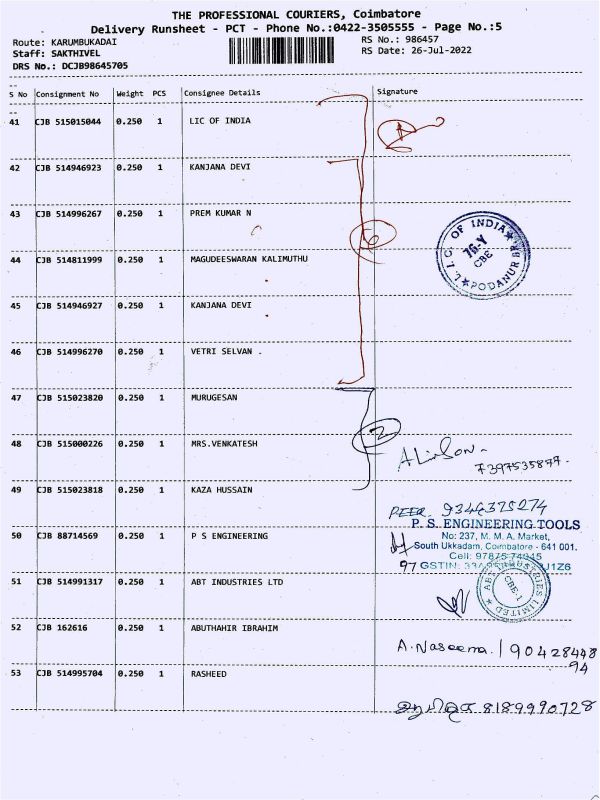 THE PROFESSIONAL COURIERS, Coimbatore
Delivery Runsheet - PCT - Phone No.:0422-3505555 - Page No.:5
Route: KARUMBUKADAI
RS No.: 986457
Staff: SAKTHIVEL
RS Date: 26-Jul-2022
DRS No.: DCJB98645705
S No Consignment No Weight PCS Consignee Details Signature
41 CJB 515015044 0.250 1 LIC OF INDIA
42 CJB 514946923 0.250 1 KANJANA DEVI
43 CJB 514996267 0.250 1 PREM KUMAR N
6
L.I.C OF INDIA
76-Y
CBE
PODANUR BR
44 CJB 514811999 0.250 1 MAGUDEESWARAN KALIMUTHU
45 CJB 514946927 0.250 1 KANJANA DEVI
46 CJB 514996270 0.250 1 VETRI SELVAN .
47 CJB 515023820 0.250 1 MURUGESAN
2
48 CJB 515000226 0.250 1 MRS.VENKATESH
7397535877.
49 CJB 515023818 0.250 1 KAZA HUSSAIN
PEER 9344375274
P. S. ENGINEERING TOOLS
50 CJB 88714569 0.250 1 P S ENGINEERING
No: 237, M. M. A. Market,
South Ukkadam, Coimbatore - 641 001.
Cell: 97875 74945
GSTIN:
51 CJB 514991317 0.250 1 ABT INDUSTRIES LTD
ABT INDUSTRIES LIMITED
CBE-1
52 CJB 162616 0.250 1 ABUTHAHIR IBRAHIM
A. Naseema. / 90428448
94
53 CJB 514995704 0.250 1 RASHEED
8189990728